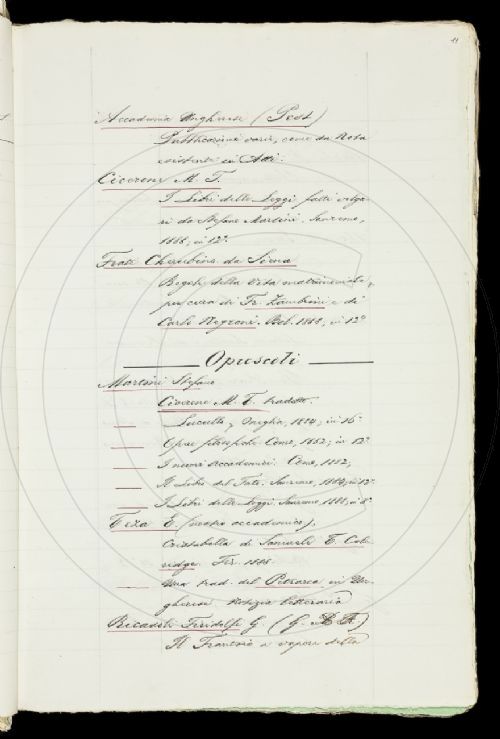 11
Accademia Ungherese (Pest)
Pubblicazioni varie, come da Nota
esistente in Atti.
Cicerone M. T.
I Libri delle Leggi fatti volga-
ri da Stefano Martini. Sanremo,
1888; in 12°.
Frate Cherubino da Siena
Regole della Vita matrimoniale,
per cura di Fr. Zambrini e di
Carlo Negroni. Bol. 1888, in 12°
Opuscoli
Martini Stefano
Cicerone M. T. tradotto.
Lucullo, Oneglia, 1884; in 16°
Opere filosofiche. Como, 1882; in 12°.
I nuovi Accademici. Como, 1882,
Il Libro del Fato. Sanremo, 1884, in 12°
I Libri delle Leggi. Sanremo, 1888, in 8°
Teza E. (nostro accademico).
Cristabella di Samuele T. Cole-
ridge. Fir. 1888.
Una trad. del Petrarca in Un-
gherese notizia letteraria
Ricasoli Firidolfi G. (G. B. F.)
Il Frantoio a vapore della